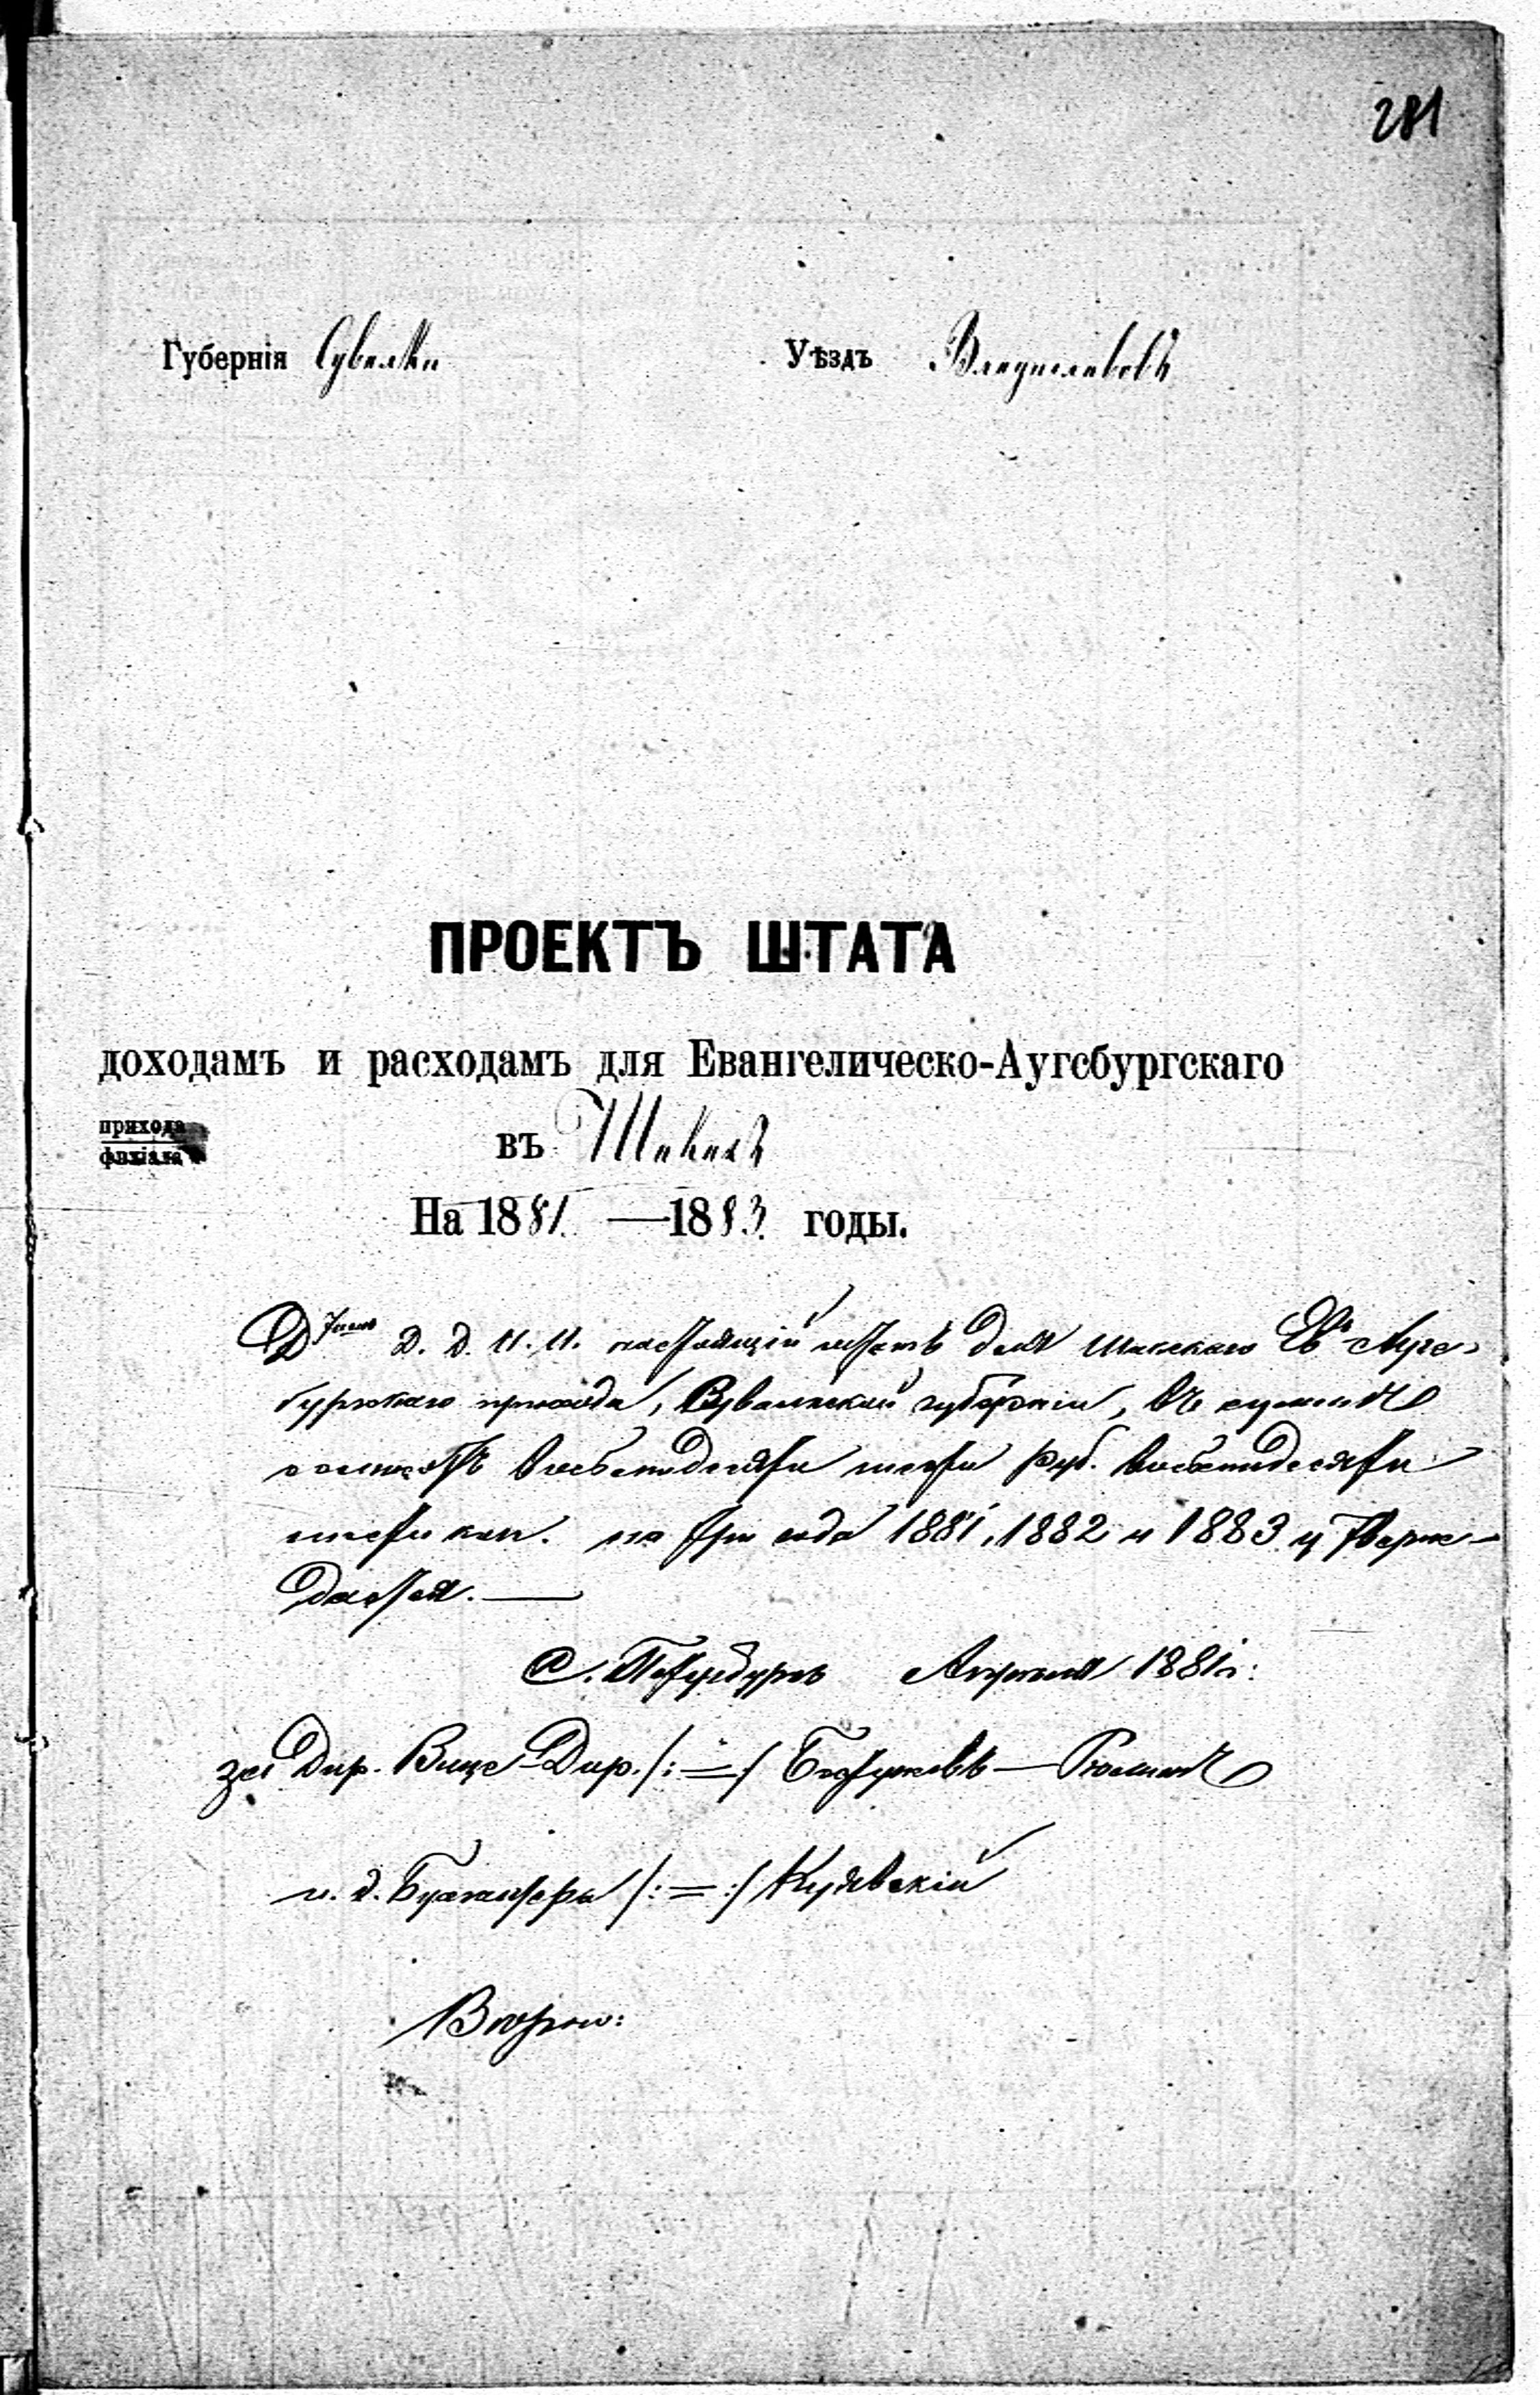 281
Губернія Сувалки Уѣздъ Владиславовъ
ПРОЕКТЪ ШТАТА
доходамъ и расходамъ для Евангелическо-Аугсбургскаго
прихода
филіала
въ Шакахъ
На 1881 —1883 годы.
Д. Д. И. И. настоящій штатъ для Шакскаго Ев. Аугс-
бургскаго прихода, Сувалкской губерніи, въ суммѣ
восьмидесяти шести руб. восьмидесяти
шести коп. на три года 1881, 1882 и 1883 утверж-
дается. —
С. Петербургъ Апрѣля 1881 г.
за Дир. Вице-Дир. /:=/
и. д. Бухгалтера /:=:/ Куявскій
Вѣрно: